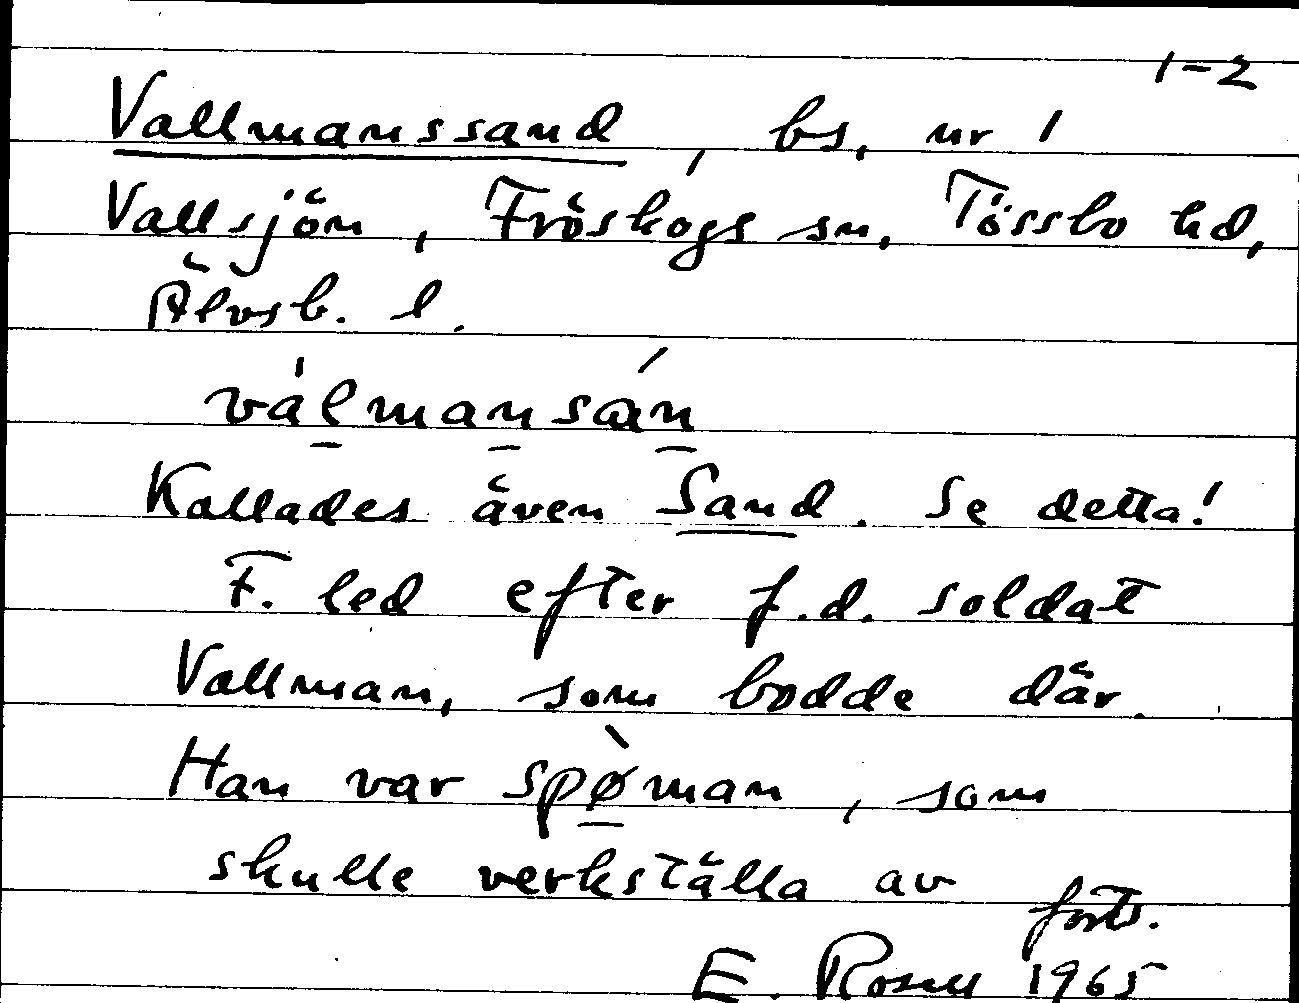 1-2
Vallmanssand, bs, nr 1
Vallsjön, Fröskogs sn, Tössbo hd,
Älvsb. l.
vålmansán
Kallades även Sand. Se detta!
F. led efter f.d. soldat
Vallman, som bodde där.
Han var spø̀man, som
skulle verkställa av
forts.
E. Rosell 1965